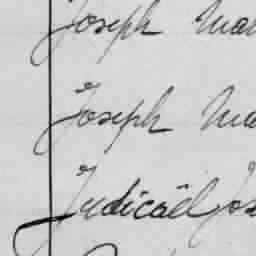 Joseph Ma
Joseph Ma
Judicaël Jos